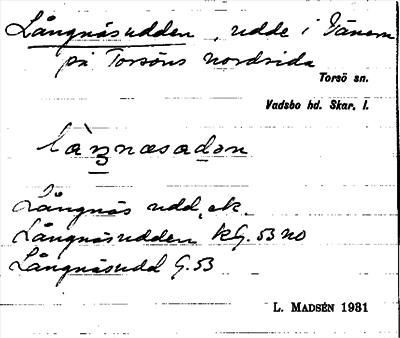 Långnäsudden, udde i Vänern
på Torsöns nordsida
Torsö sn.
Vadsbo hd. Skar. l.
Långnäs udd, ek.
Långnäsudden kG. 53 NO
Långnäsudd G. 53
L. MADSÉN 1931